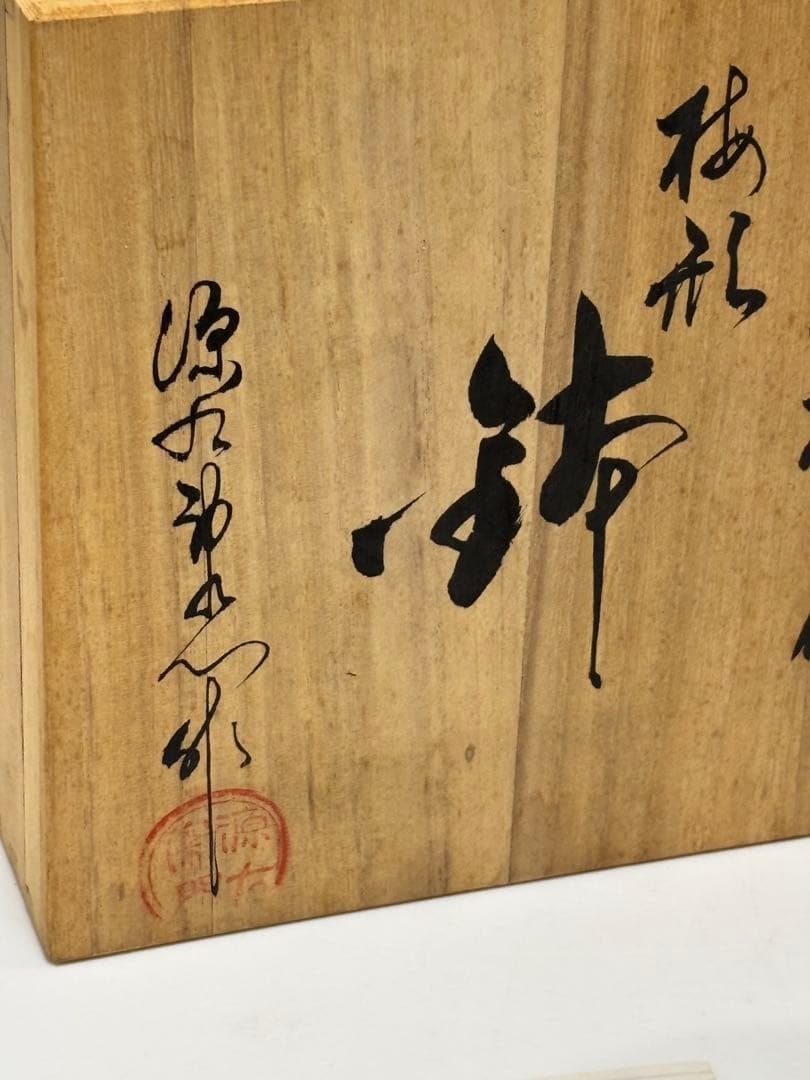 梅形
鉢
源右衛門
源右
衛門